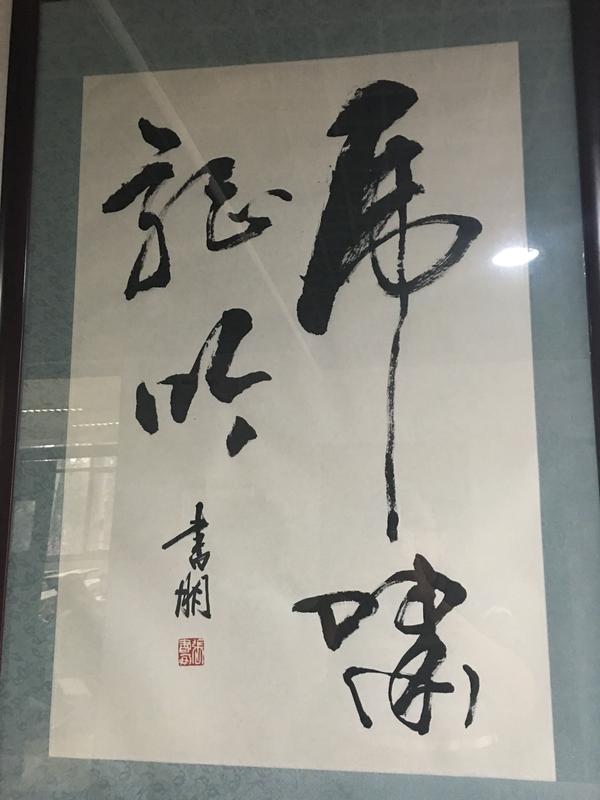 虎啸
龍吟
书朋